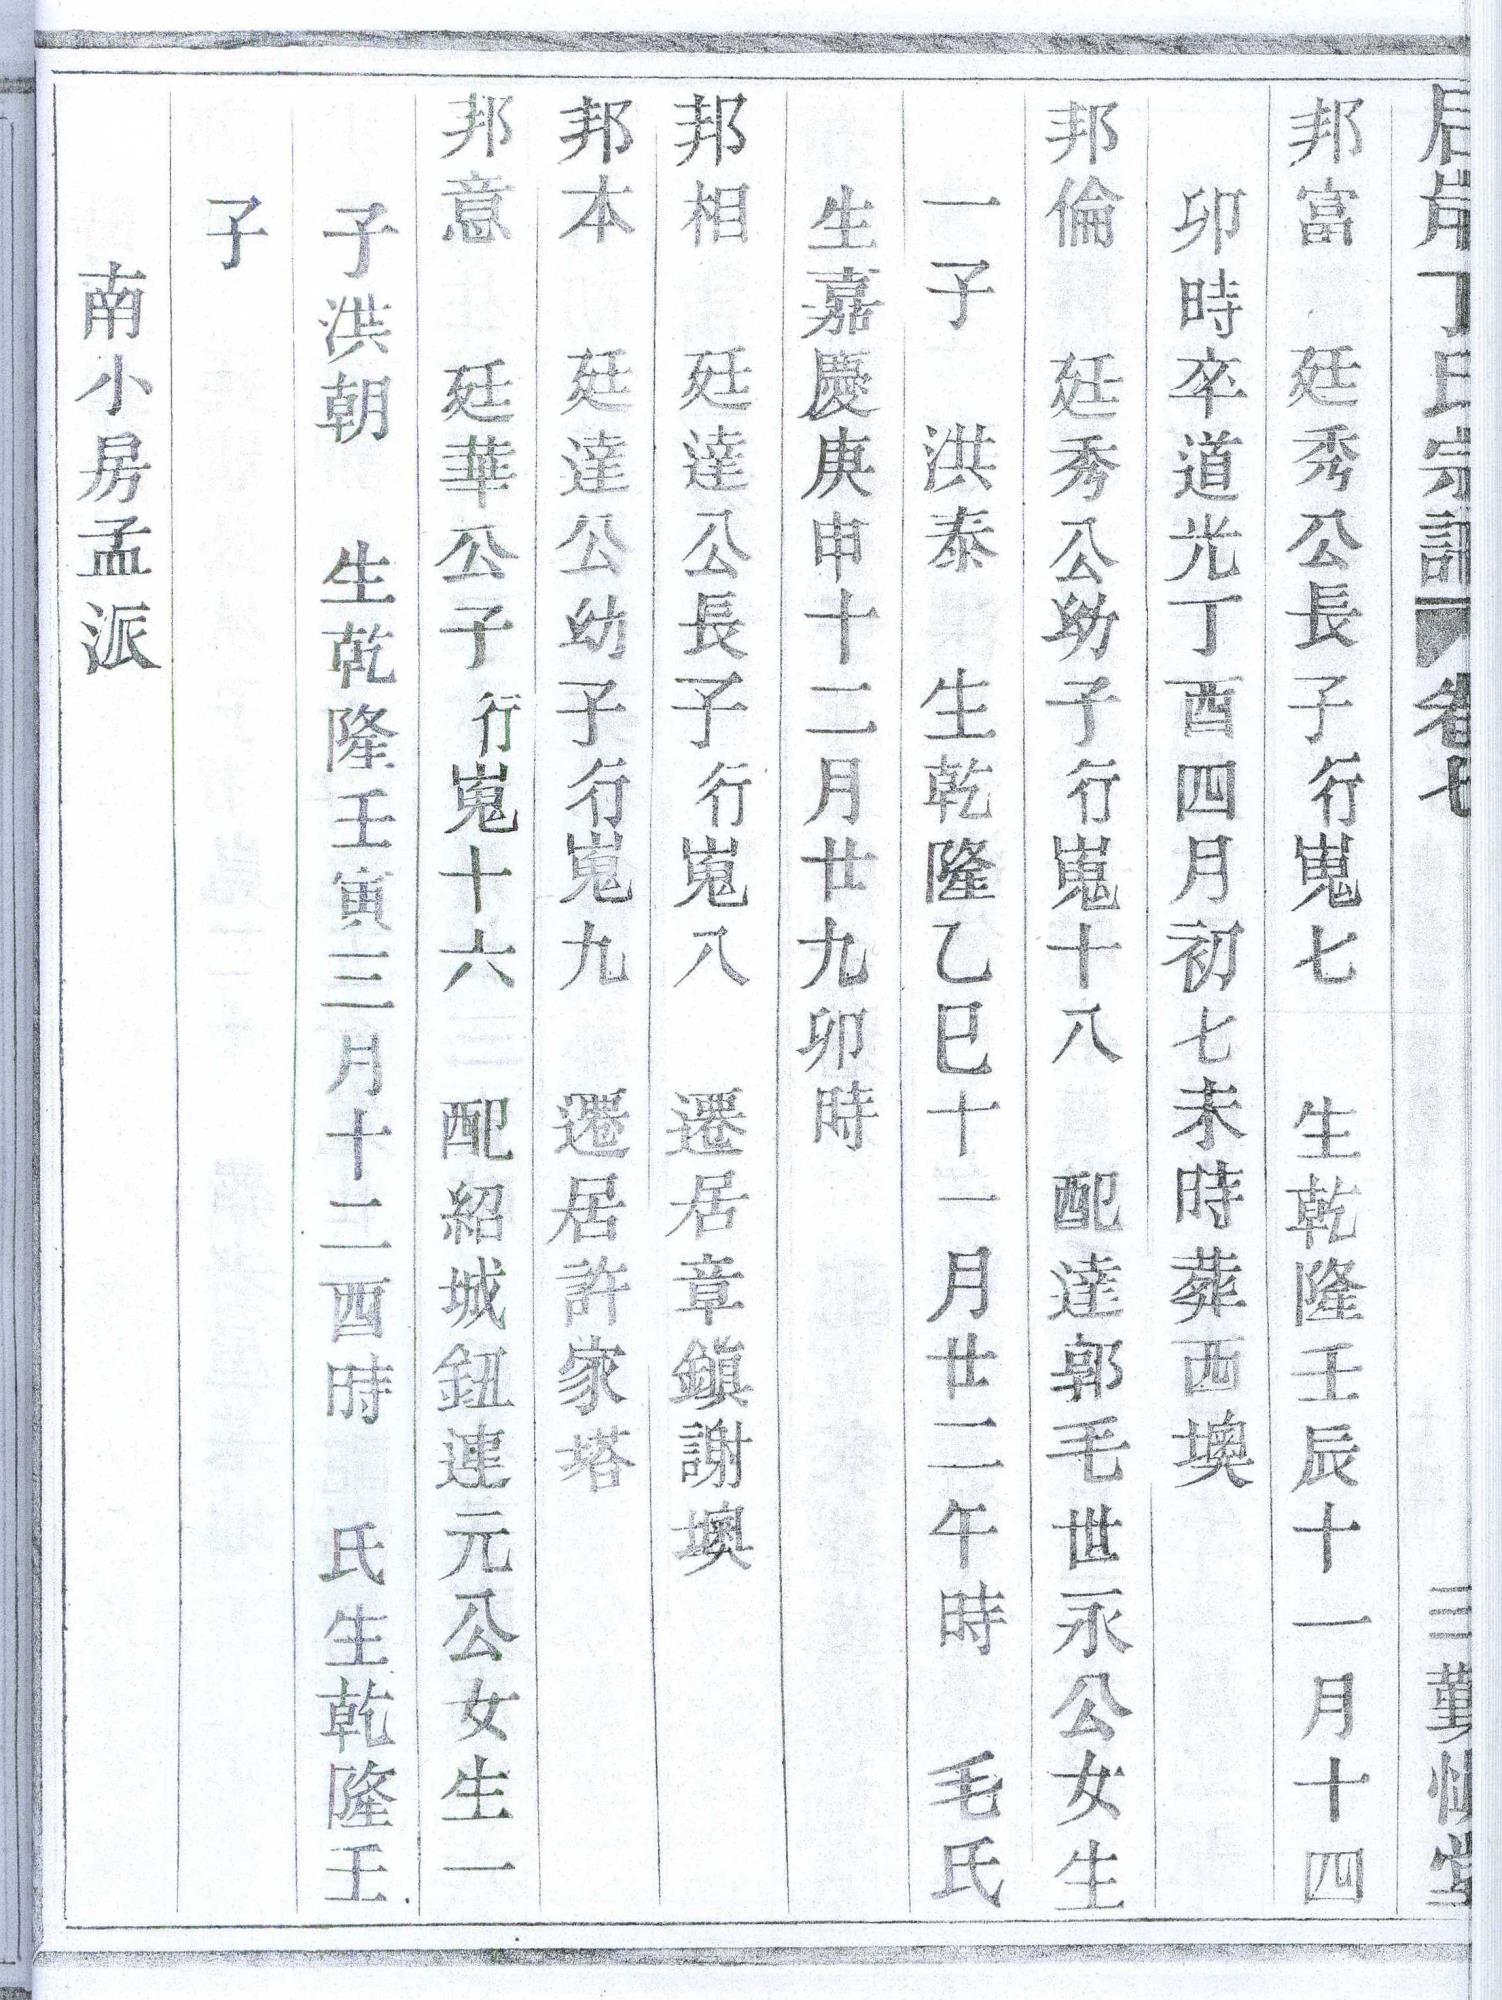 后岸丁氏宗譜 卷七 三 勤慎堂
邦富 廷秀公長子行嵬七 生乾隆壬辰十一月十四
卯時卒道光丁酉四月初七未時葬西墺
邦倫 廷秀公幼子行嵬十八 配達郭毛世永公女生
一子 洪泰 生乾隆乙巳十一月廿二午時 毛氏
生嘉慶庚申十二月廿九卯時
邦相 廷達公長子行嵬八 遷居章鎮謝墺
邦本 廷達公幼子行嵬九 遷居許家塔
邦意 廷華公子行嵬十六 配紹城鈕連元公女生一
子洪朝 生乾隆壬寅三月十二酉時 氏生乾隆壬
子
南小房孟派